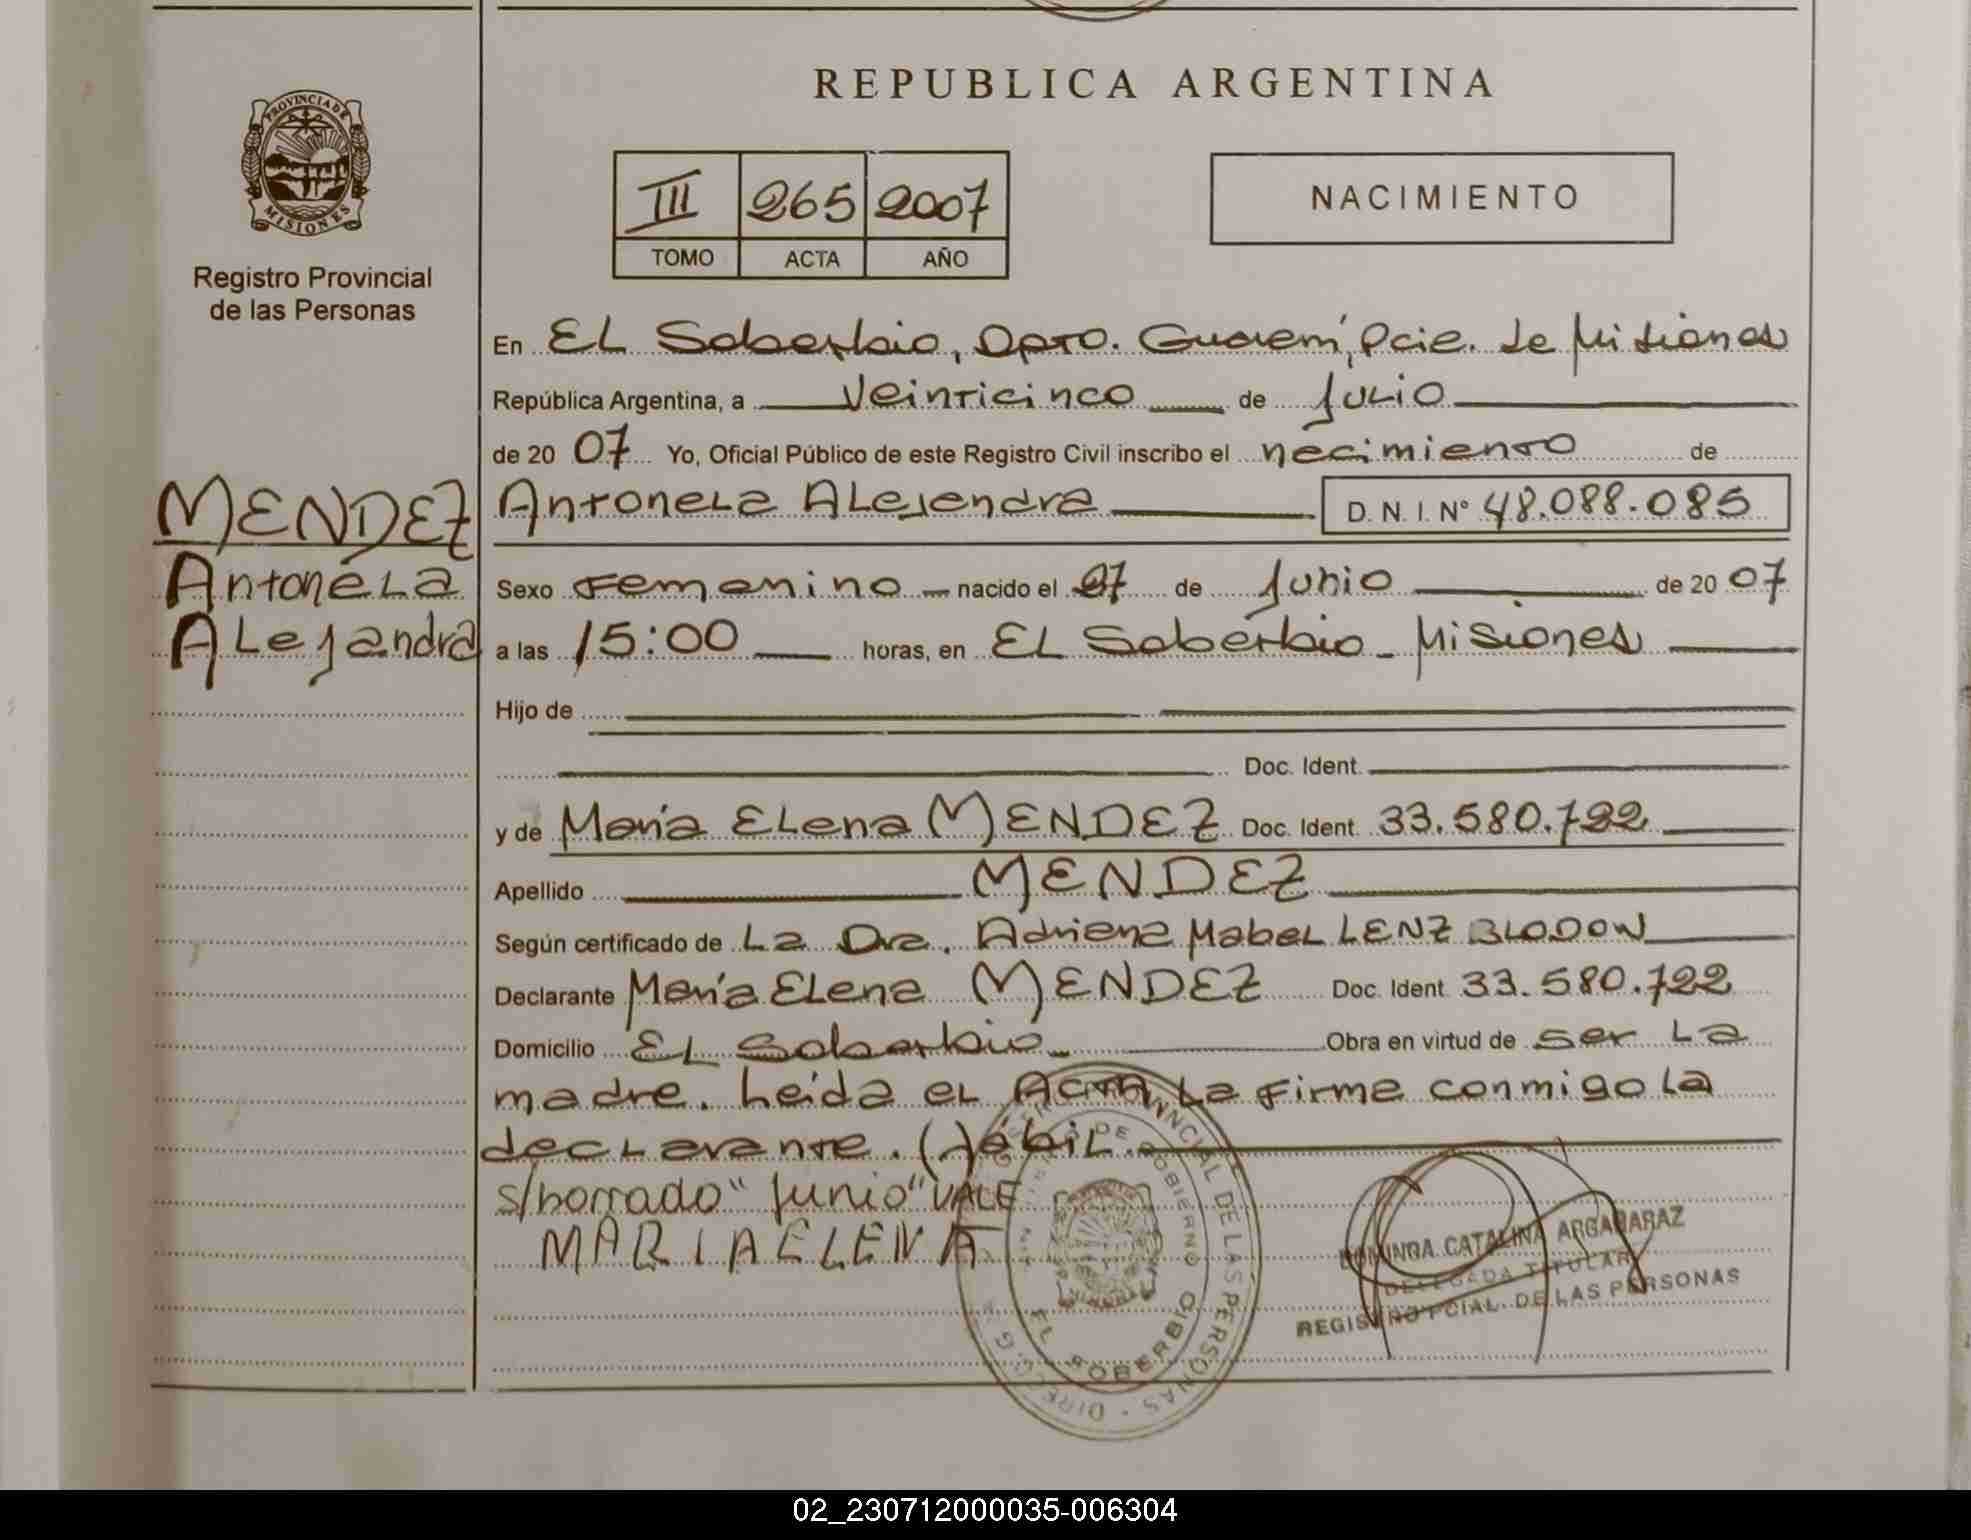 REPUBLICA ARGENTINA
PROVINCIA DE
MISIONES
Registro Provincial
de las Personas
III 265 2007
TOMO ACTA AÑO
NACIMIENTO
En EL Soberbio, Dpto. Guaraní, Pcia. de Misiones
República Argentina, a Veinticinco de Julio
de 20 07 Yo, Oficial Público de este Registro Civil inscribo el nacimiento de
MENDEZ
Antonela
Alejandra
Antonela Alejandra D. N. I. Nº 48.088.085
Sexo Femenino nacido el 27 de Junio de 20 07
a las 15:00 horas, en EL Soberbio - Misiones
Hijo de
Doc. Ident.
y de María Elena MENDEZ Doc. Ident. 33.580.722
Apellido MENDEZ
Según certificado de La Dra. Adriana Mabel LENZ BLODOW
Declarante María Elena MENDEZ Doc. Ident. 33.580.722
Domicilio EL Soberbio Obra en virtud de ser la
madre. Leída el Acta la firma conmigo la
declarante.
s/borrado "Junio" VALE
MARIA ELENA
EL SOBERBIO
DOMINGA CATALINA ARGAÑARAZ
DELEGADA TITULAR
REGISTRO PCIAL. DE LAS PERSONAS
02_230712000035-006304